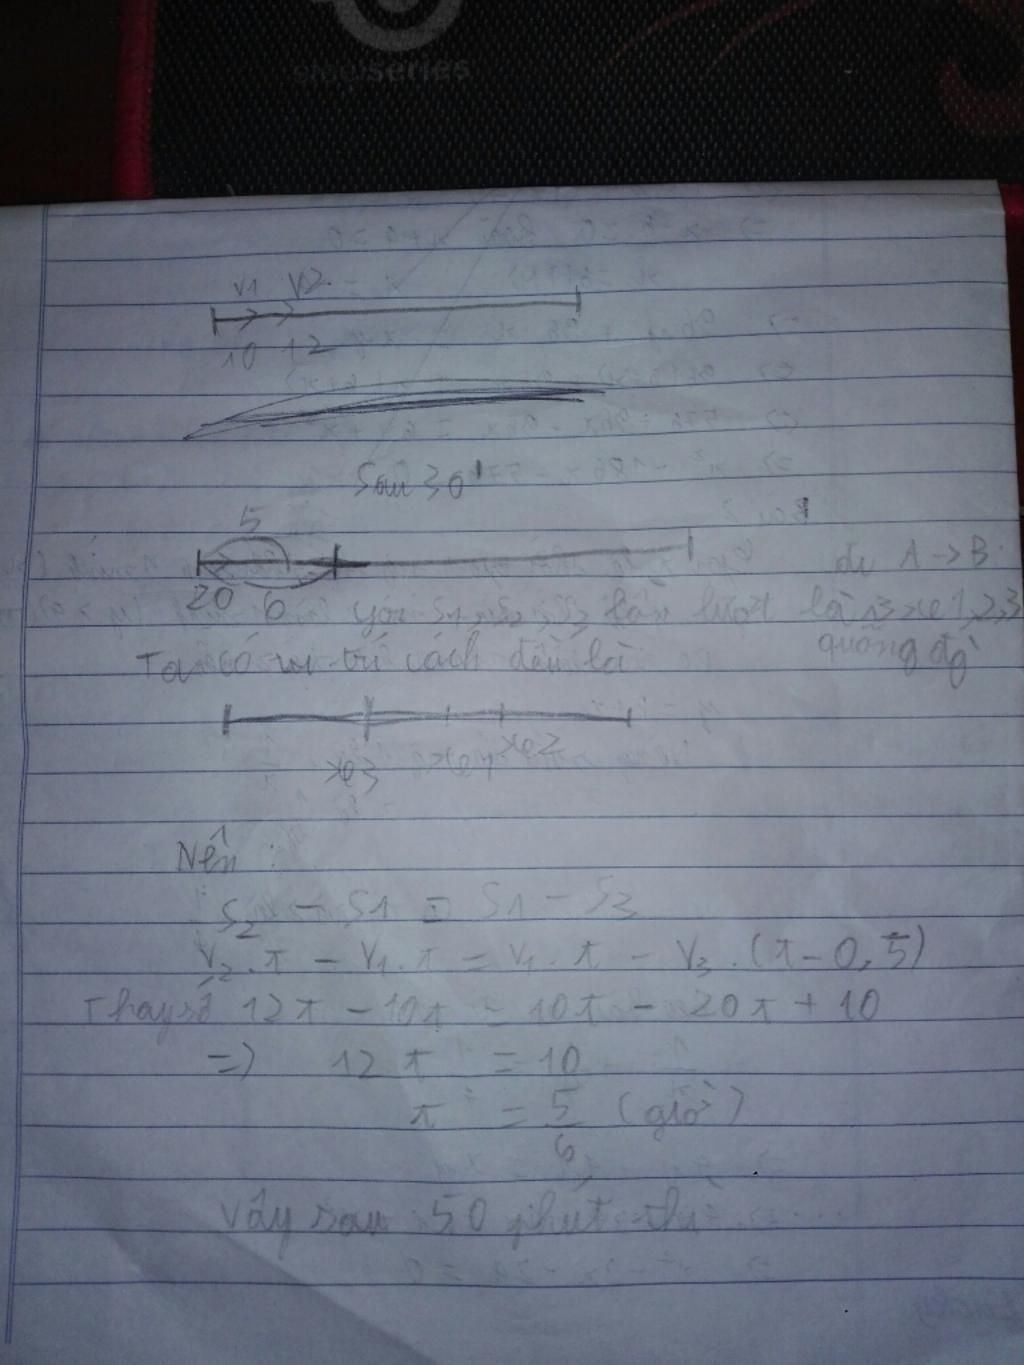 steelseries
V1 V2
10 12
Sau 30'
5
đi A -> B
20 6 gọi S1, S2, S3 lần lượt là 3 xe 1,2,3
quãng đg
Ta có vị trí cách đều là
xe3 xe1 xe2
Nên :
S2 - S1 = S1 - S3
V2.x - V1.x = V1.x - V3.(x-0,5)
Thay số 12x - 10x = 10x - 20x + 10
=> 12x = 10
x = 5/6 (giờ)
Vậy sau 50 phút thì